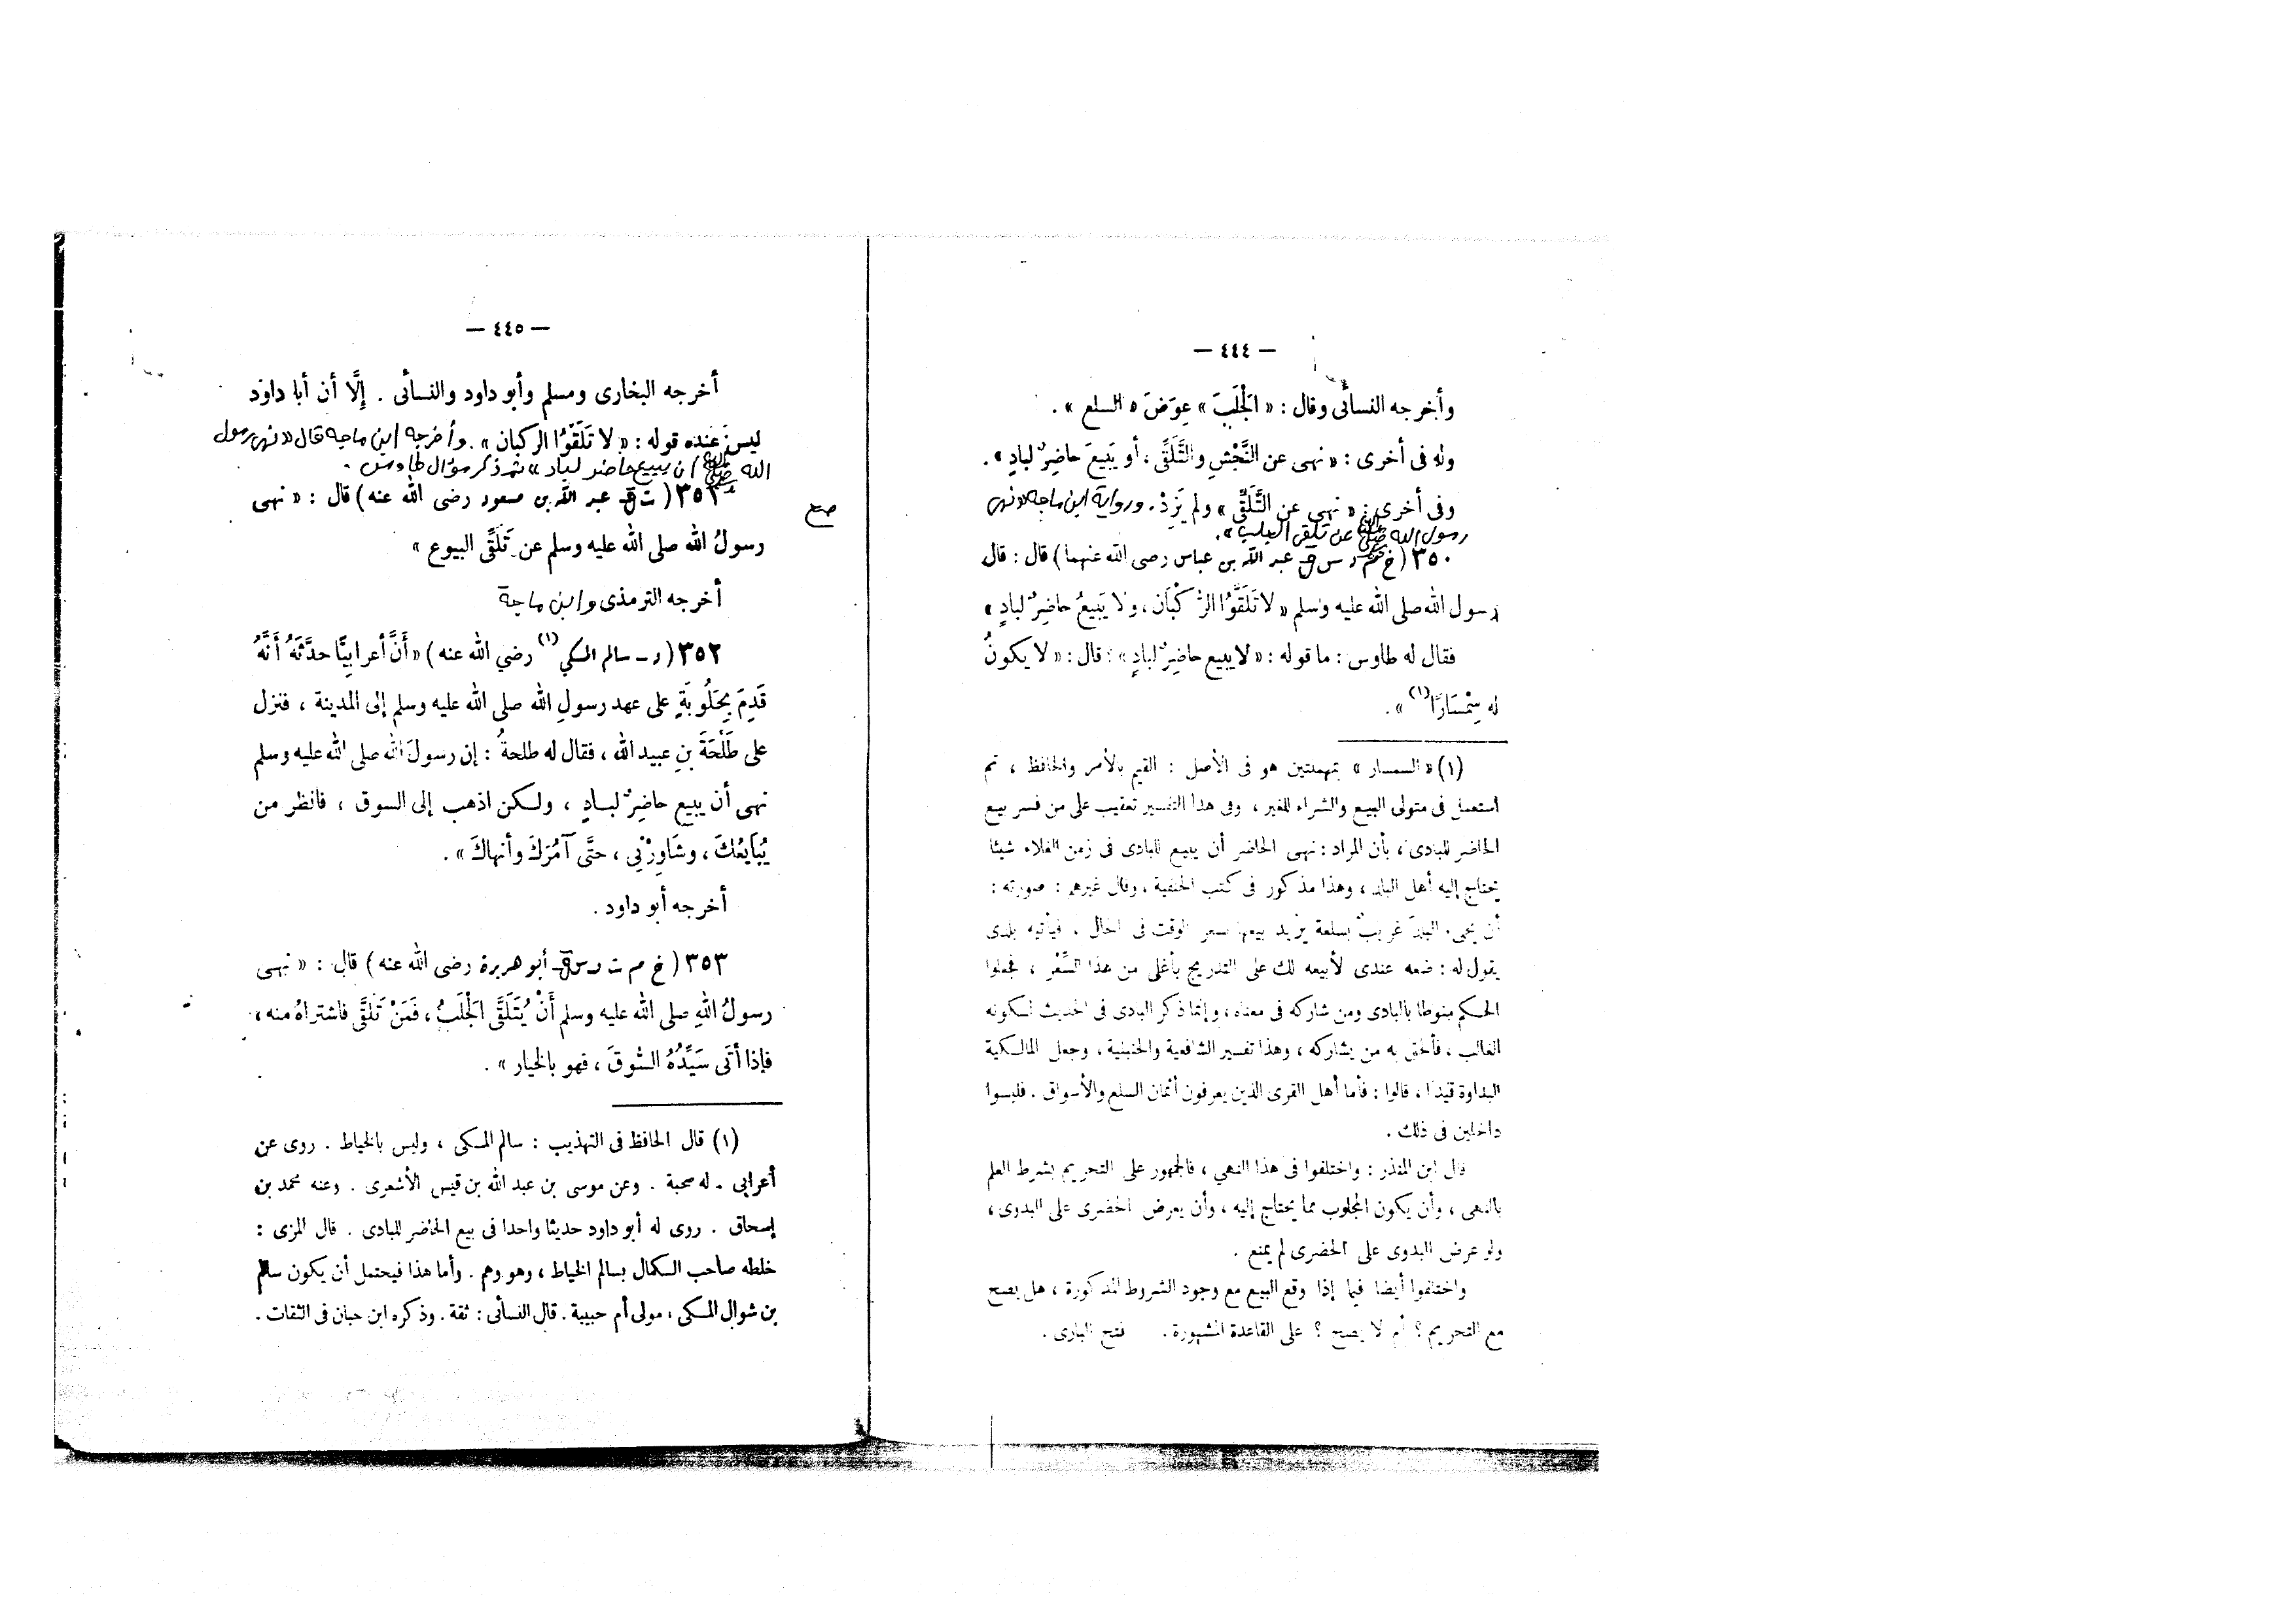 — ٤٤٤ —
وأخرجه النسائى وقال : « الْجَلَبَ » عِوَضَ « السلع » .
وله فى أخرى : « نهى عن النَّجْشِ والتَّلَقِّى ، أو يَبيعَ حاضِرٌ لبادٍ » .
وفى أخرى : « نهى عن التَّلَقِّى » ولم يَزِدْ . ورواية ابن ماجه « نهى
رسول الله ﷺ عن تلقى الجلب » .
٣٥٠ ( خ م د س ق عبد الله بن عباس رضى الله عنهما ) قال : قال
رسول الله صلى الله عليه وسلم « لا تَلَقَّوُا الرُّكْبَان ، ولا يَبيعُ حاضِرٌ لبادٍ »
فقال له طاوس : ما قوله : « لا يبيع حاضِرٌ لبادٍ » ؟ قال : « لا يكونُ
له سِمْسَارًا (١) » .
(١) « السمسار » بمهملتين هو فى الأصل : القيم بالأمر والحافظ ، ثم
استعمل فى متولى البيع والشراء للغير ، وفى هذا التفسير تعقيب على من فسر بيع
الحاضر للبادى ، بأن المراد : نهى الحاضر أن يبيع للبادى فى زمن الغلاء شيئا
يحتاج إليه أهل البلد ، وهذا مذكور فى كتب الحنفية ، وقال غيرهم : صورته :
أن يجىء البلد غريب بسلعة يريد بيعها بسعر الوقت فى الحال ، فيأتيه بلدى
يقول له : ضعه عندى لأبيعه لك على التدريج بأغلى من هذا السِّعْر ، فجعلوا
الحكم منوطا بالبادى ومن شاركه فى معناه ، وإنما ذكر البادى فى الحديث لكونه
الغالب ، فألحق به من يشاركه ، وهذا تفسير الشافعية والحنبلية ، وجعل المالكية
البداوة قيدا ، قالوا : فأما أهل القرى الذين يعرفون أثمان السلع والأسواق . فليسوا
داخلين فى ذلك .
قال ابن المنذر : واختلفوا فى هذا النهي ، فالجمهور على التحريم بشرط العلم
بالنهى ، وأن يكون المجلوب مما يحتاج إليه ، وأن يعرض الحضرى على البدوى ،
ولو عرض البدوى على الحضرى لم يمنع .
واختلفوا أيضا فيما إذا وقع البيع مع وجود الشروط المذكورة ، هل يصح
مع التحريم ؟ أم لا يصح ؟ على القاعدة المشهورة . فتح البارى .
— ٤٤٥ —
أخرجه البخارى ومسلم وأبو داود والنسائى . إلَّا أن أبا داود
ليس عنده قوله : « لا تَلَقَّوُا الركبان » . وأخرجه ابن ماجه قال « نهى رسول
الله ﷺ أن يبيع حاضر لباد » ثم ذكر سؤال طاوس .
٣٥١ ( ت ق عبد الله بن مسعود رضى الله عنه ) قال : « نهى
رسولُ الله صلى الله عليه وسلم عن تَلَقِّى البيوع »
أخرجه الترمذى وابن ماجة
٣٥٢ ( د – سالم المكي (١) رضي الله عنه ) « أَنَّ أعرابيًّا حدَّثَهُ أَنَّهُ
قَدِمَ بِحَلُوبَةٍ على عهد رسولِ الله صلى الله عليه وسلم إلى المدينة ، فنزل
على طَلْحَةَ بنِ عبيد الله ، فقال له طلحةُ : إن رسولَ الله صلى الله عليه وسلم
نهى أن يبيع حاضِرٌ لبادٍ ، ولكن اذهب إلى السوق ، فانظر من
يُبَايِعُكَ ، وشَاوِرْنِي ، حتَّى آمُرَكَ وأنهاكَ » .
أخرجه أبو داود .
٣٥٣ ( خ م ت د س ق أبو هريرة رضى الله عنه ) قال : « نهى
رسولُ اللهِ صلى الله عليه وسلم أَنْ يُتَلَقَّى الْجَلَبُ ، فَمَنْ تَلَقَّى فاشتراهُ منه ،
فإذا أتَى سَيِّدُهُ السُّوقَ ، فهو بالخيار » .
(١) قال الحافظ فى التهذيب : سالم المكى ، وليس بالخياط . روى عن
أعرابى . له صحبة . وعن موسى بن عبد الله بن قيس الأشعرى . وعنه محمد بن
إسحاق . روى له أبو داود حديثا واحدا فى بيع الحاضر للبادى . قال المزى :
خلطه صاحب الكمال بسالم الخياط ، وهو وهم . وأما هذا فيحتمل أن يكون سالم
بن شوال المكى ، مولى أم حبيبة . قال النسائى : ثقة . وذكره ابن حبان فى الثقات .